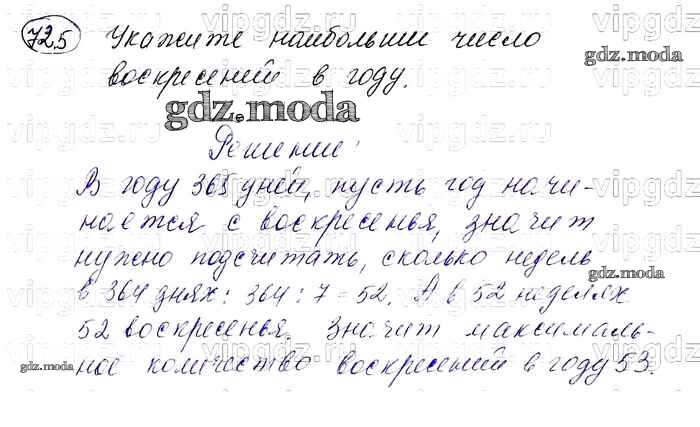 725 Укажите наибольши число
gdz.moda
воскресений в году.
gdz.moda
Решении:
В году 365 дней, пусть год начи-
нается с воскресенья, значит
нужно подсчитать, сколько недель
gdz.moda
в 364 днях: 364 : 7 = 52. А в 52 неделях
52 воскресенья. Значит максималь-
gdz.moda
ное количество воскресений в году 53.